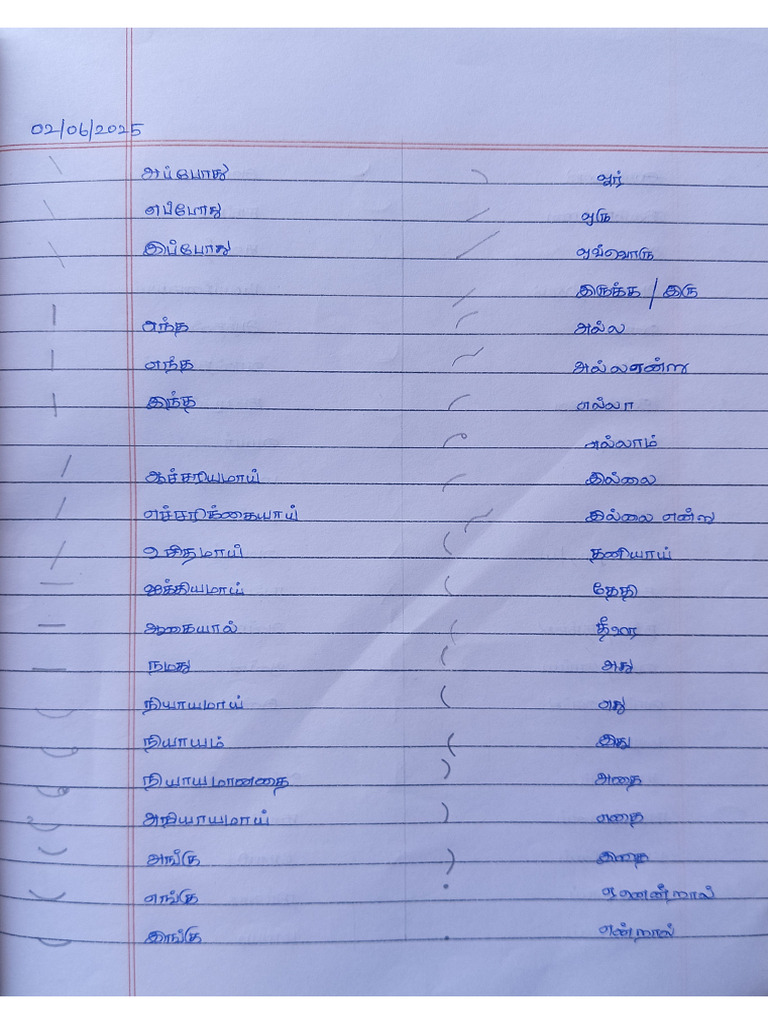 02/06/2025
அப்போது ஓர்
எப்போது ஒரு
இப்போது ஒவ்வொரு
இருக்க / இரு
அந்த அல்ல
எந்த அல்லஎன்று
இந்த எல்லா
எல்லாம்
ஆச்சரியமாய் இல்லை
எச்சரிக்கையாய் இல்லை என்று
உசிதமாய் தனியாய்
ஐக்கியமாய் தேதி
ஆகையால்
நமது அது
நியாயமாய் எது
நியாயம் இது
நியாயமானதை அதை
அநியாயமாய் எதை
அங்கு இதை
எங்கு ஏனென்றால்
இங்கு என்றால்